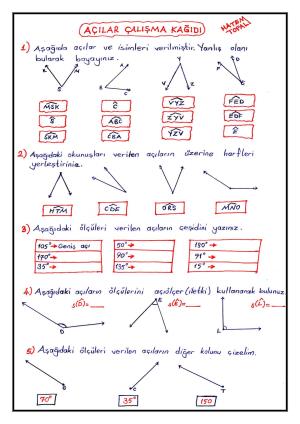 AÇILAR ÇALIŞMA KAĞIDI
HATEM TOPAL
1) Aşağıda açılar ve isimleri verilmiştir. Yanlış olanı
bularak boyayınız.
M K A V Y D
S B C Z E F
MSK C VYZ FED
S ABC ZYV EDF
SKM CBA YZV E
2) Aşağıdaki okunuşları verilen açıların üzerine harfleri
yerleştiriniz.
HTM CDE ORS MNO
3) Aşağıdaki ölçüleri verilen açıların çeşidini yazınız.
105° → Geniş açı 50° → 180° →
170° → 90° → 91° →
35° → 135° → 15° →
4) Aşağıdaki açıların ölçülerini açıölçer (iletki) kullanarak bulunuz.
s(D)= s(E)= s(L)=
D E L
5) Aşağıdaki ölçüleri verilen açıların diğer kolunu çizelim.
B C T
70° 35° 150